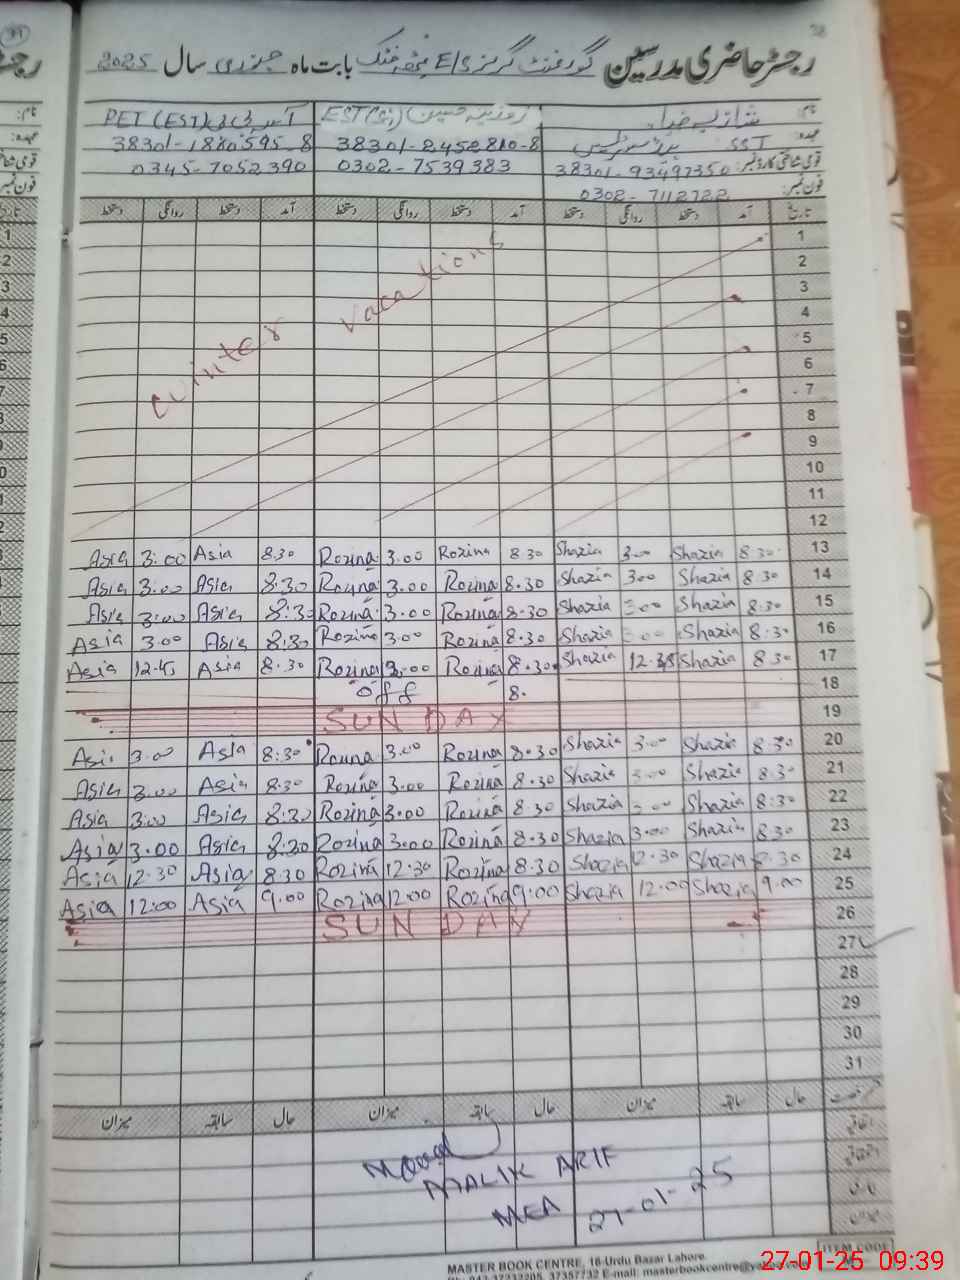 رجسٹر حاضری مدرسین گورنمنٹ گرلز E/S بابت ماہ جنوری سال 2025
نام: شازیہ
عہدہ: SST
EST
PET (EST)
قومی شناختی کارڈ نمبر: 38301-93497350 38301-2452810-8 38301-1880595-8
فون نمبر: 0308-7112722 0302-7539383 0345-7052390
تاریخ آمد دستخط روانگی دستخط آمد دستخط روانگی دستخط آمد دستخط روانگی دستخط
1
2
3
4
5
6
7
8
9
10
11
12
winter vacations
Asia 3:00 Asia 8.30 Rozina 3.00 Rozina 8.30 Shazia 3.00 Shazia 8.30 13
Asia 3.00 Asia 8.30 Rozina 3.00 Rozina 8.30 Shazia 3.00 Shazia 8.30 14
Asia 3.00 Asia 8:30 Rozina 3.00 Rozina 8.30 Shazia 3.00 Shazia 8.30 15
Asia 3.00 Asia 8.30 Rozina 3.00 Rozina 8.30 Shazia 3.00 Shazia 8.30 16
Asia 12.45 Asia 8.30 Rozina 3.00 Rozina 8.30 Shazia Shazia 8.30 17
off 8. 18
SUN DAY 19
Asi 3.00 Asia 8:30 Rozina 3.00 Rozina 8.30 Shazia 3.00 Shazia 8.30 20
Asia 3.00 Asia 8.30 Rozina 3.00 Rozina 8.30 Shazia 3.00 Shazia 8.30 21
Asia 3.00 Asia 8.30 Rozina 3.00 Rozina 8.30 Shazia 3.00 Shazia 8.30 22
Asia 3.00 Asia 8.30 Rozina 3.00 Rozina 8.30 Shazia 3.00 Shazia 8.30 23
Asia 12.30 Asia 8.30 Rozina 12.30 Rozina 8.30 Shazia 12.30 Shazia 8.30 24
Asia 12:00 Asia 9.00 Rozina 12.00 Rozina 9:00 Shazia 12.00 Shazia 9.00 25
SUN DAY 26
27
28
29
30
31
حال سابقہ میزان حال سابقہ میزان حال سابقہ میزان
MALIK ARIF
MEA 27-01-25
ITEM CODE
MASTER BOOK CENTRE, 16-Urdu Bazar Lahore.
Ph: 042-37232205, 37357732 E-mail: masterbookcentre@yahoo.com
27-01-25 09:39